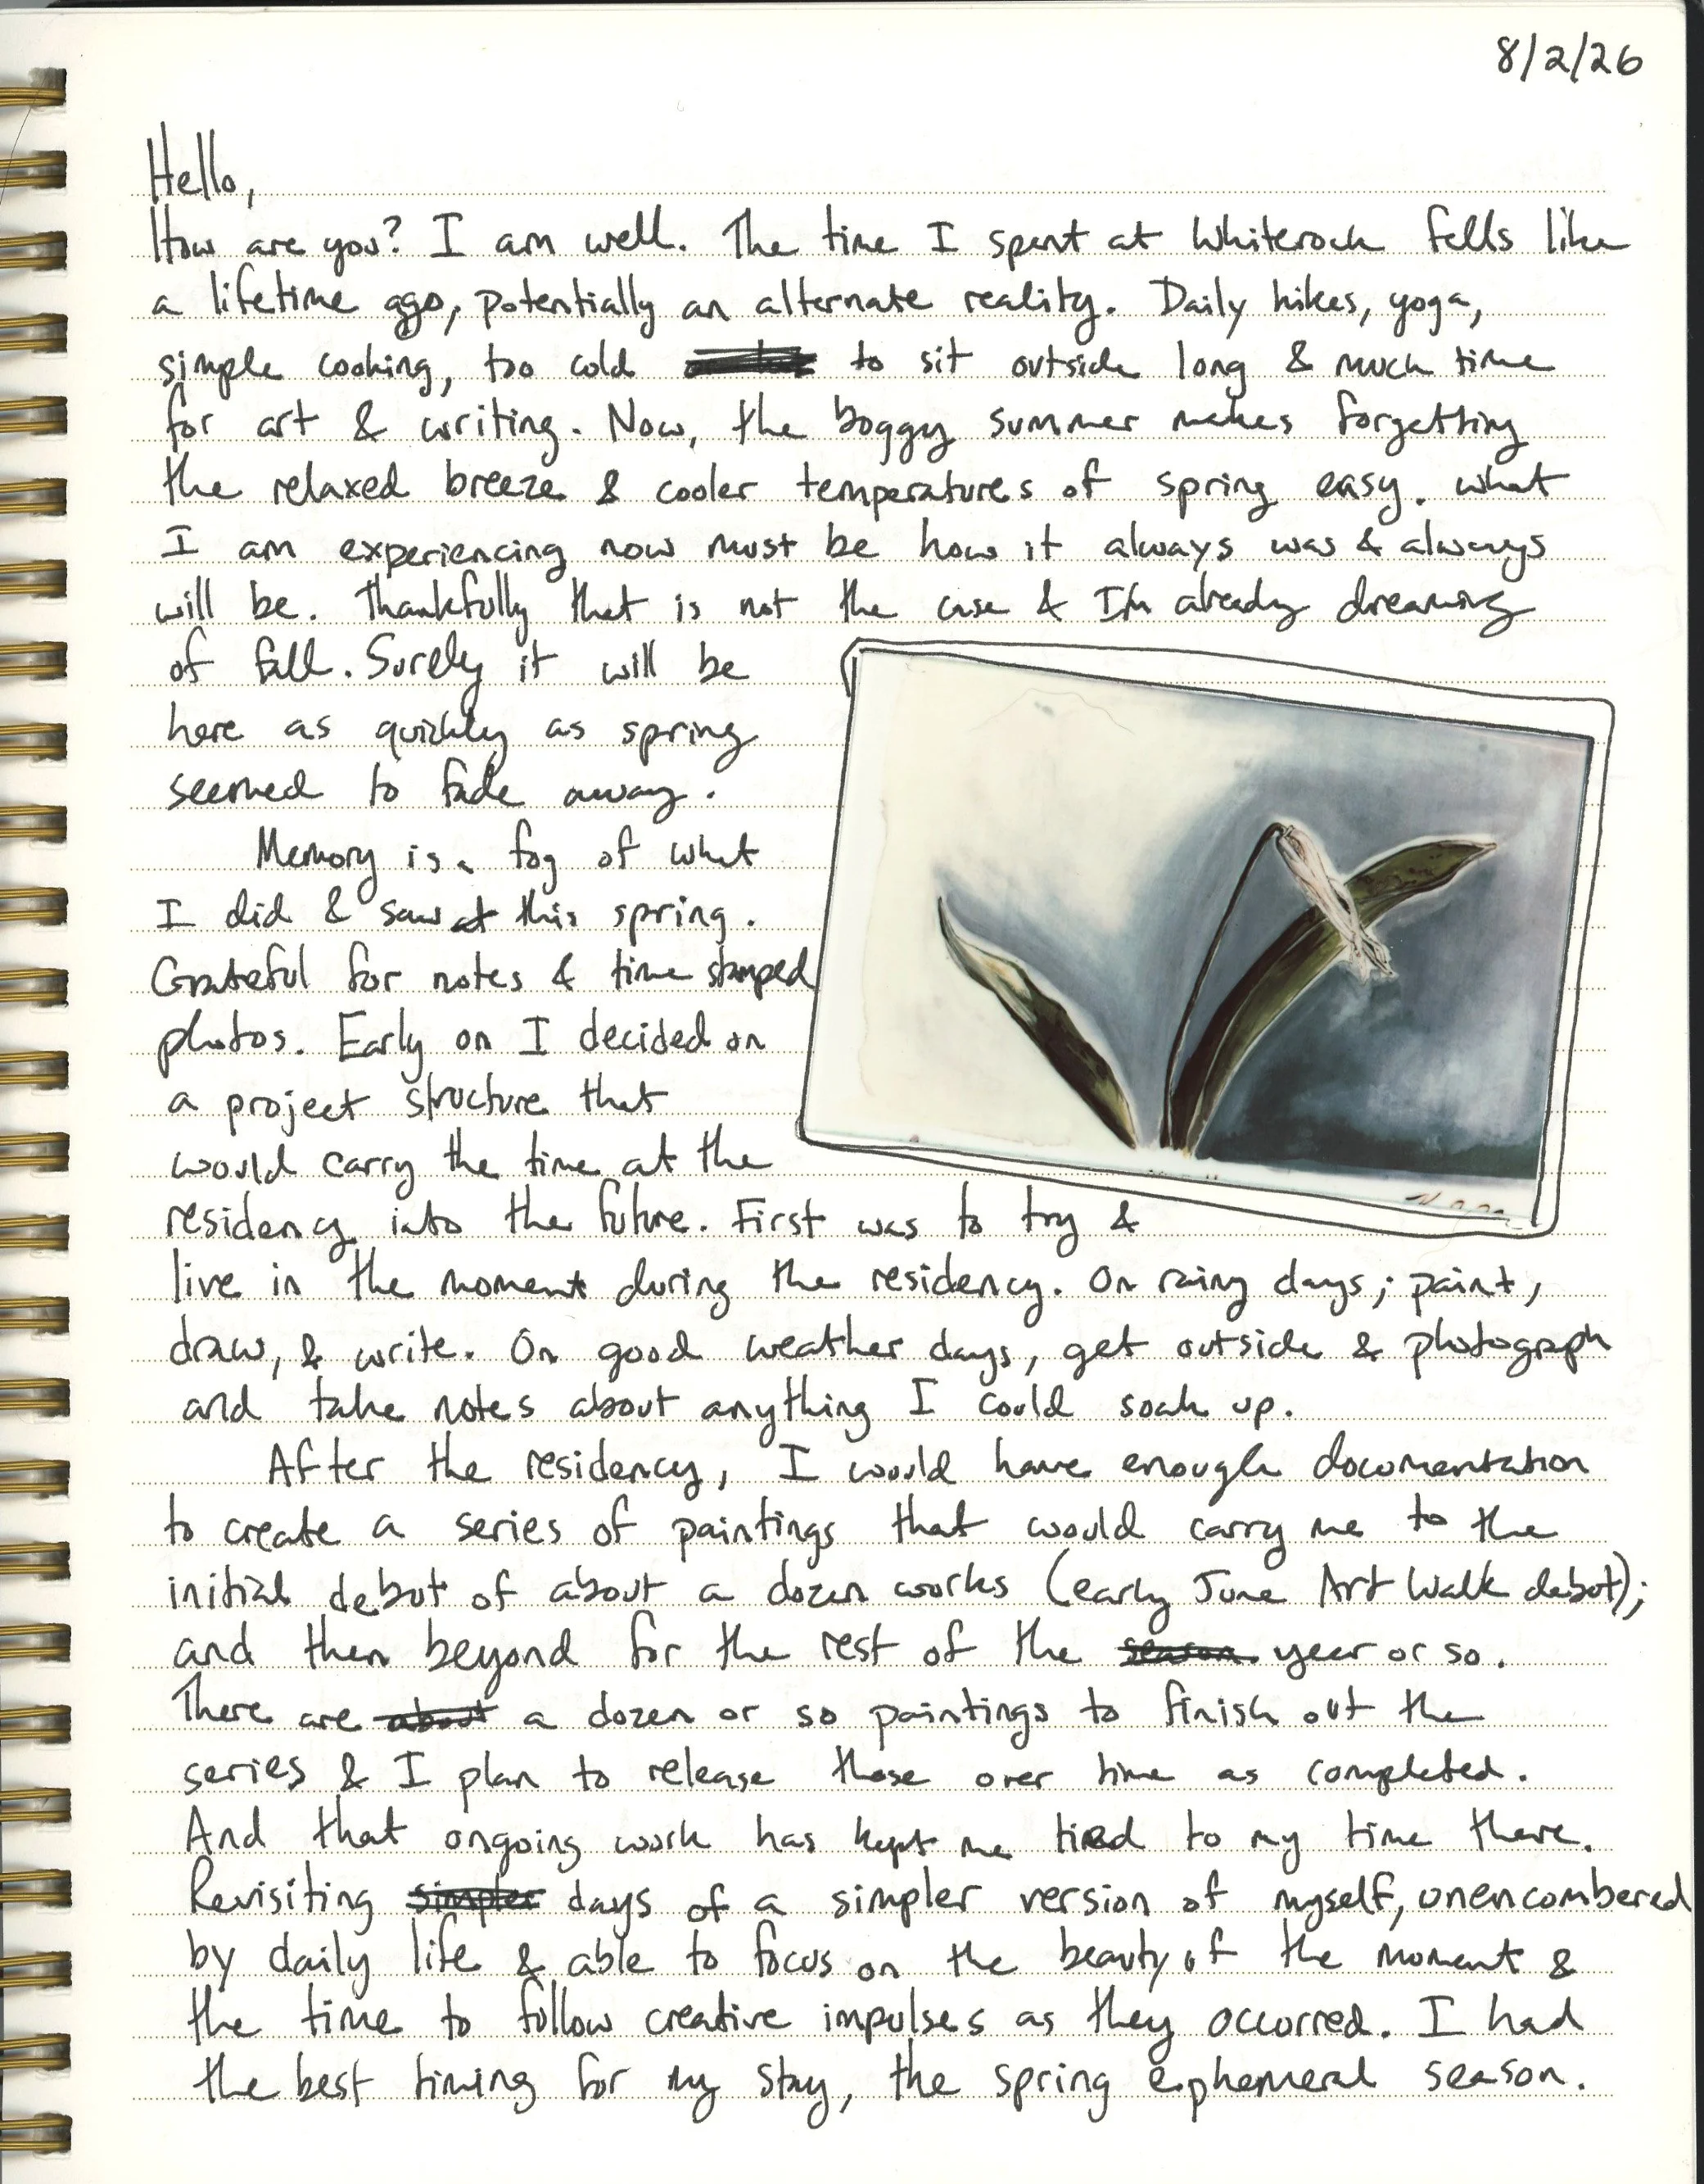 8/2/26
Hello,
How are you? I am well. The time I spent at Whiterock fells like
a lifetime ago, potentially an alternate reality. Daily hikes, yoga,
simple cooking, too cold to sit outside long & much time
for art & writing. Now, the boggy summer makes forgetting
the relaxed breeze & cooler temperatures of spring easy. What
I am experiencing now must be how it always was & always
will be. Thankfully that is not the case & I'm already dreaming
of fall. Surely it will be
here as quickly as spring
seemed to fade away.
Memory is a fog of what
I did & saw at this spring.
Grateful for notes & time stamped
photos. Early on I decided on
a project structure that
would carry the time at the
residency into the future. First was to try &
live in the moment during the residency. On rainy days; paint,
draw, & write. On good weather days, get outside & photograph
and take notes about anything I could soak up.
After the residency, I would have enough documentation
to create a series of paintings that would carry me to the
initial debut of about a dozen works (early June Art Walk debut);
and then beyond for the rest of the season year or so.
There are about a dozen or so paintings to finish out the
series & I plan to release those over time as completed.
And that ongoing work has kept me tied to my time there.
Revisiting simpler days of a simpler version of myself, unencombered
by daily life & able to focus on the beauty of the moment &
the time to follow creative impulses as they occurred. I had
the best timing for my stay, the spring ephemeral season.